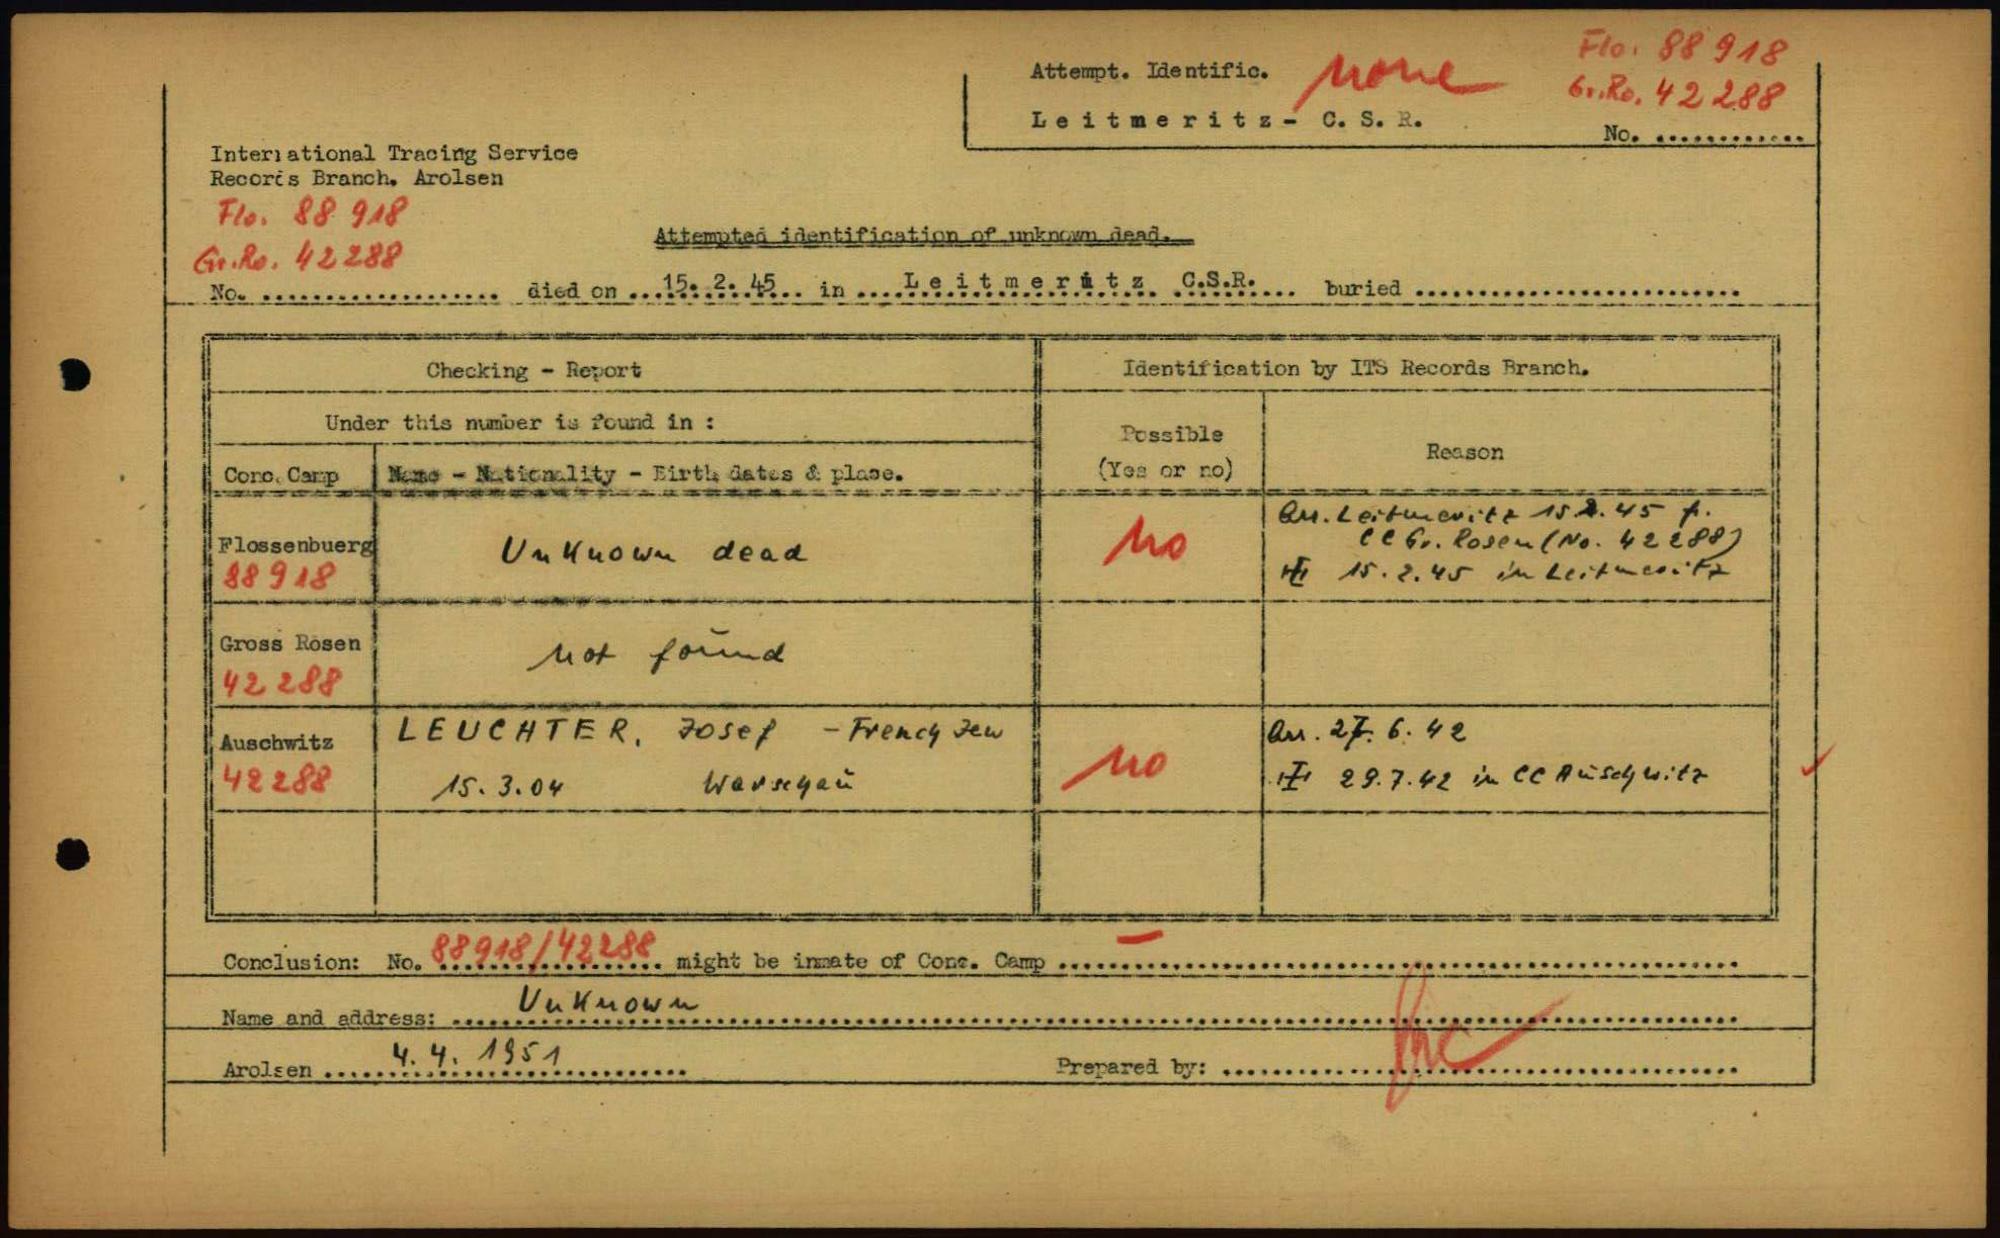 Attempt. Identific. none
Flo. 88 918
Gr.Ro. 42 288
Leitmeritz - C. S. R.
No. ............
International Tracing Service
Records Branch, Arolsen
Flo. 88 918
Gr.Ro. 42 288
Attempted identification of unknown dead.
No. ................... died on ...15. 2. 45... in ...Leitmeritz C.S.R.... buried ..........................
Checking - Report
Identification by ITS Records Branch.
Under this number is found in :
Possible
(Yes or no)
Reason
Conc. Camp
Name - Nationality - Birth dates & place.
Flossenbuerg
88 918
Unknown dead
no
Arr. Leitmeritz 15.2.45 f.
CC Gr. Rosen (No. 42288)
15.2.45 in Leitmeritz
Gross Rosen
42 288
not found
Auschwitz
42288
LEUCHTER, Josef - French Jew
15.3.04 Warschau
no
Arr. 27. 6. 42
29.7.42 in CC Auschwitz
Conclusion: No. 88918/42288 might be inmate of Conc. Camp –
Name and address: Unknown
Arolsen 4. 4. 1951
Prepared by: